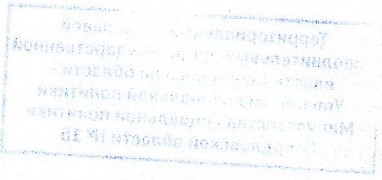 Территориальный
исполнительный государственной
власти области -
Управление социальной политики
Министерства социальной политики
Свердловской области № 15